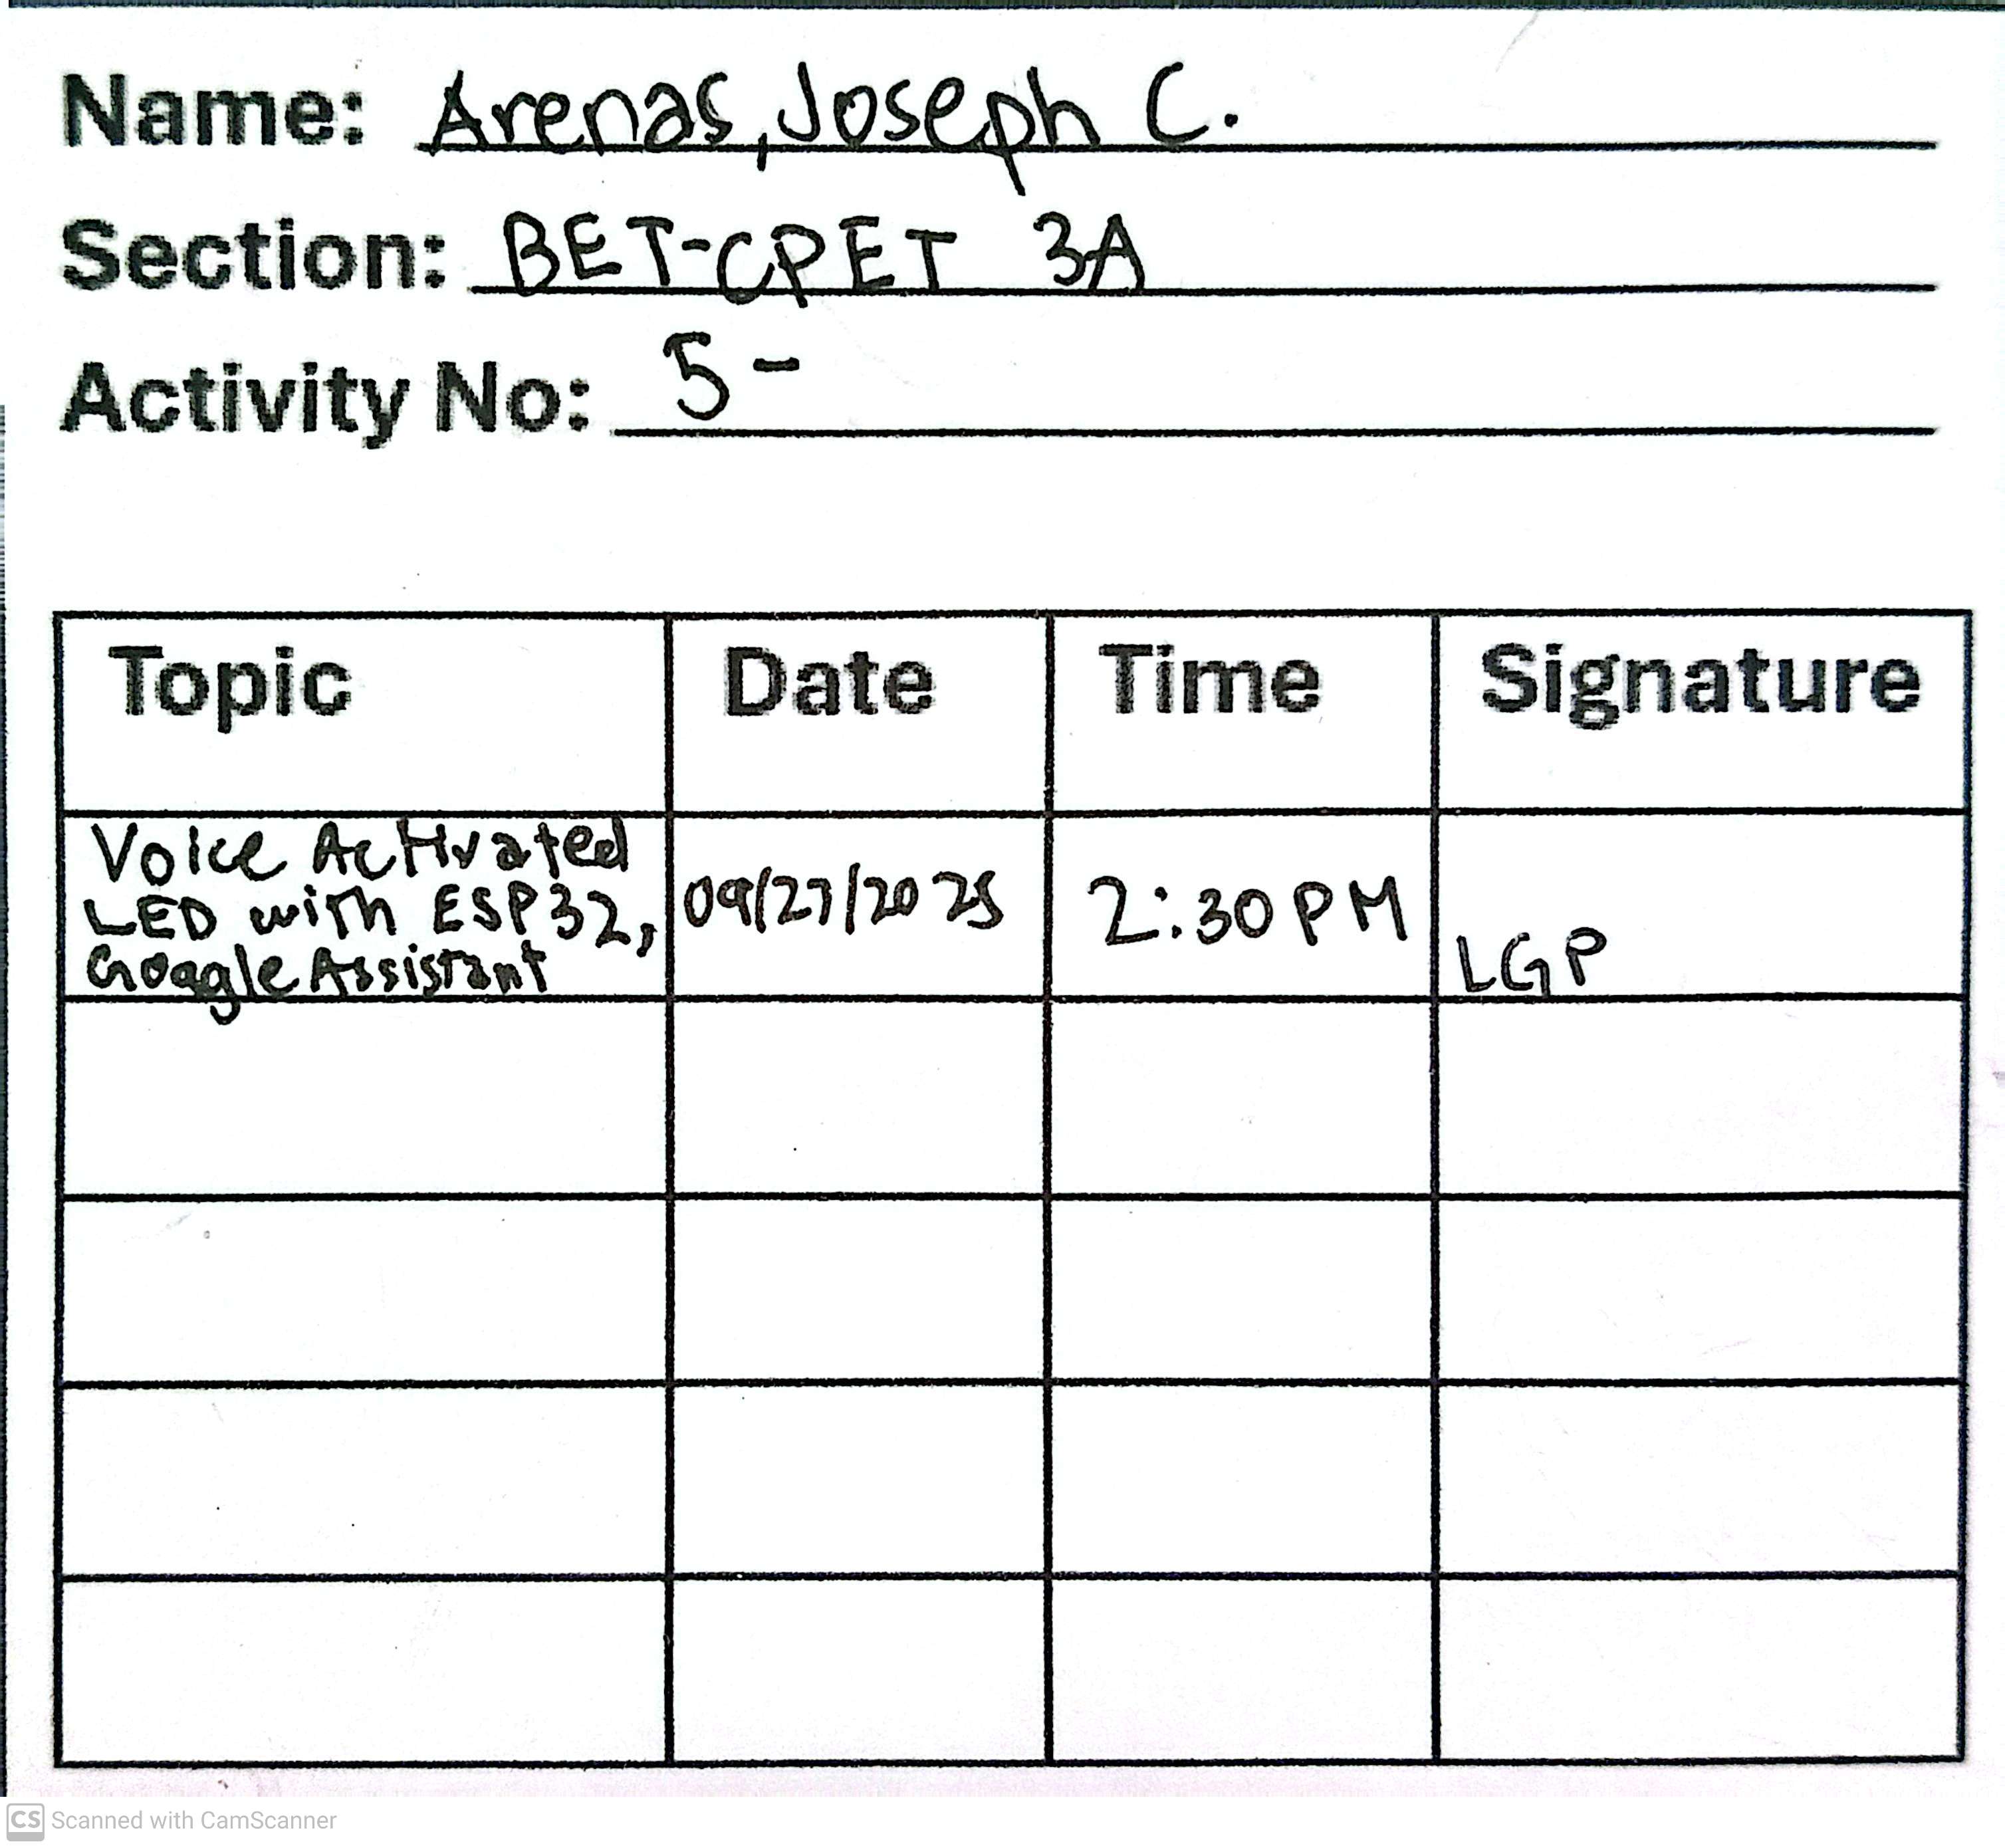 Name: Arenas, Joseph C.
Section: BET-CPET 3A
Activity No: 5-
Topic Date Time Signature
Voice Activated
LED with ESP32, 09/27/2025 2:30 PM
Google Assistant LGP
CS Scanned with CamScanner